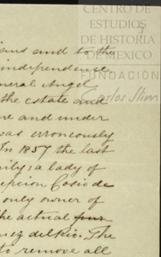 CENTRO DE
ESTUDIOS
DE HISTORIA
DE MEXICO
FUNDACIÓN
Carlos Slim
and to the
independence
neral Angel
the estate and
re and under
was erroneously
In 1857 the last
ily; a lady of
Cosio de
only owner of
the actual
The
to remove all